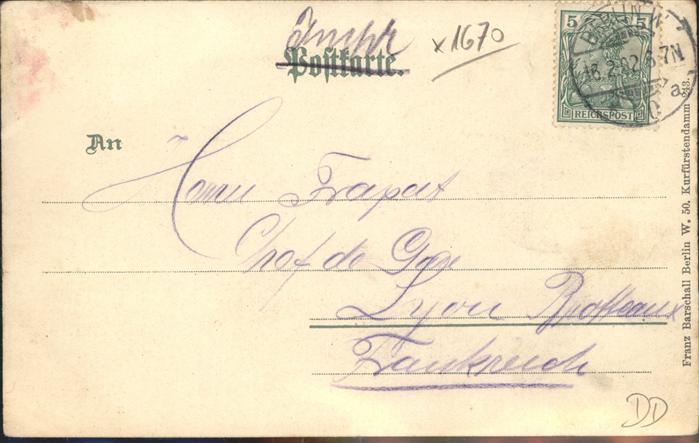 x1670
Postkarte.
5 5
BERLIN W
18.2.02.6-7N
a.
REICHSPOST
An
Herrn Frapart
Chef de Gare
Lyon Brotteaux
Frankreich
DD
Franz Barschall Berlin W. 50. Kurfürstendamm 243.